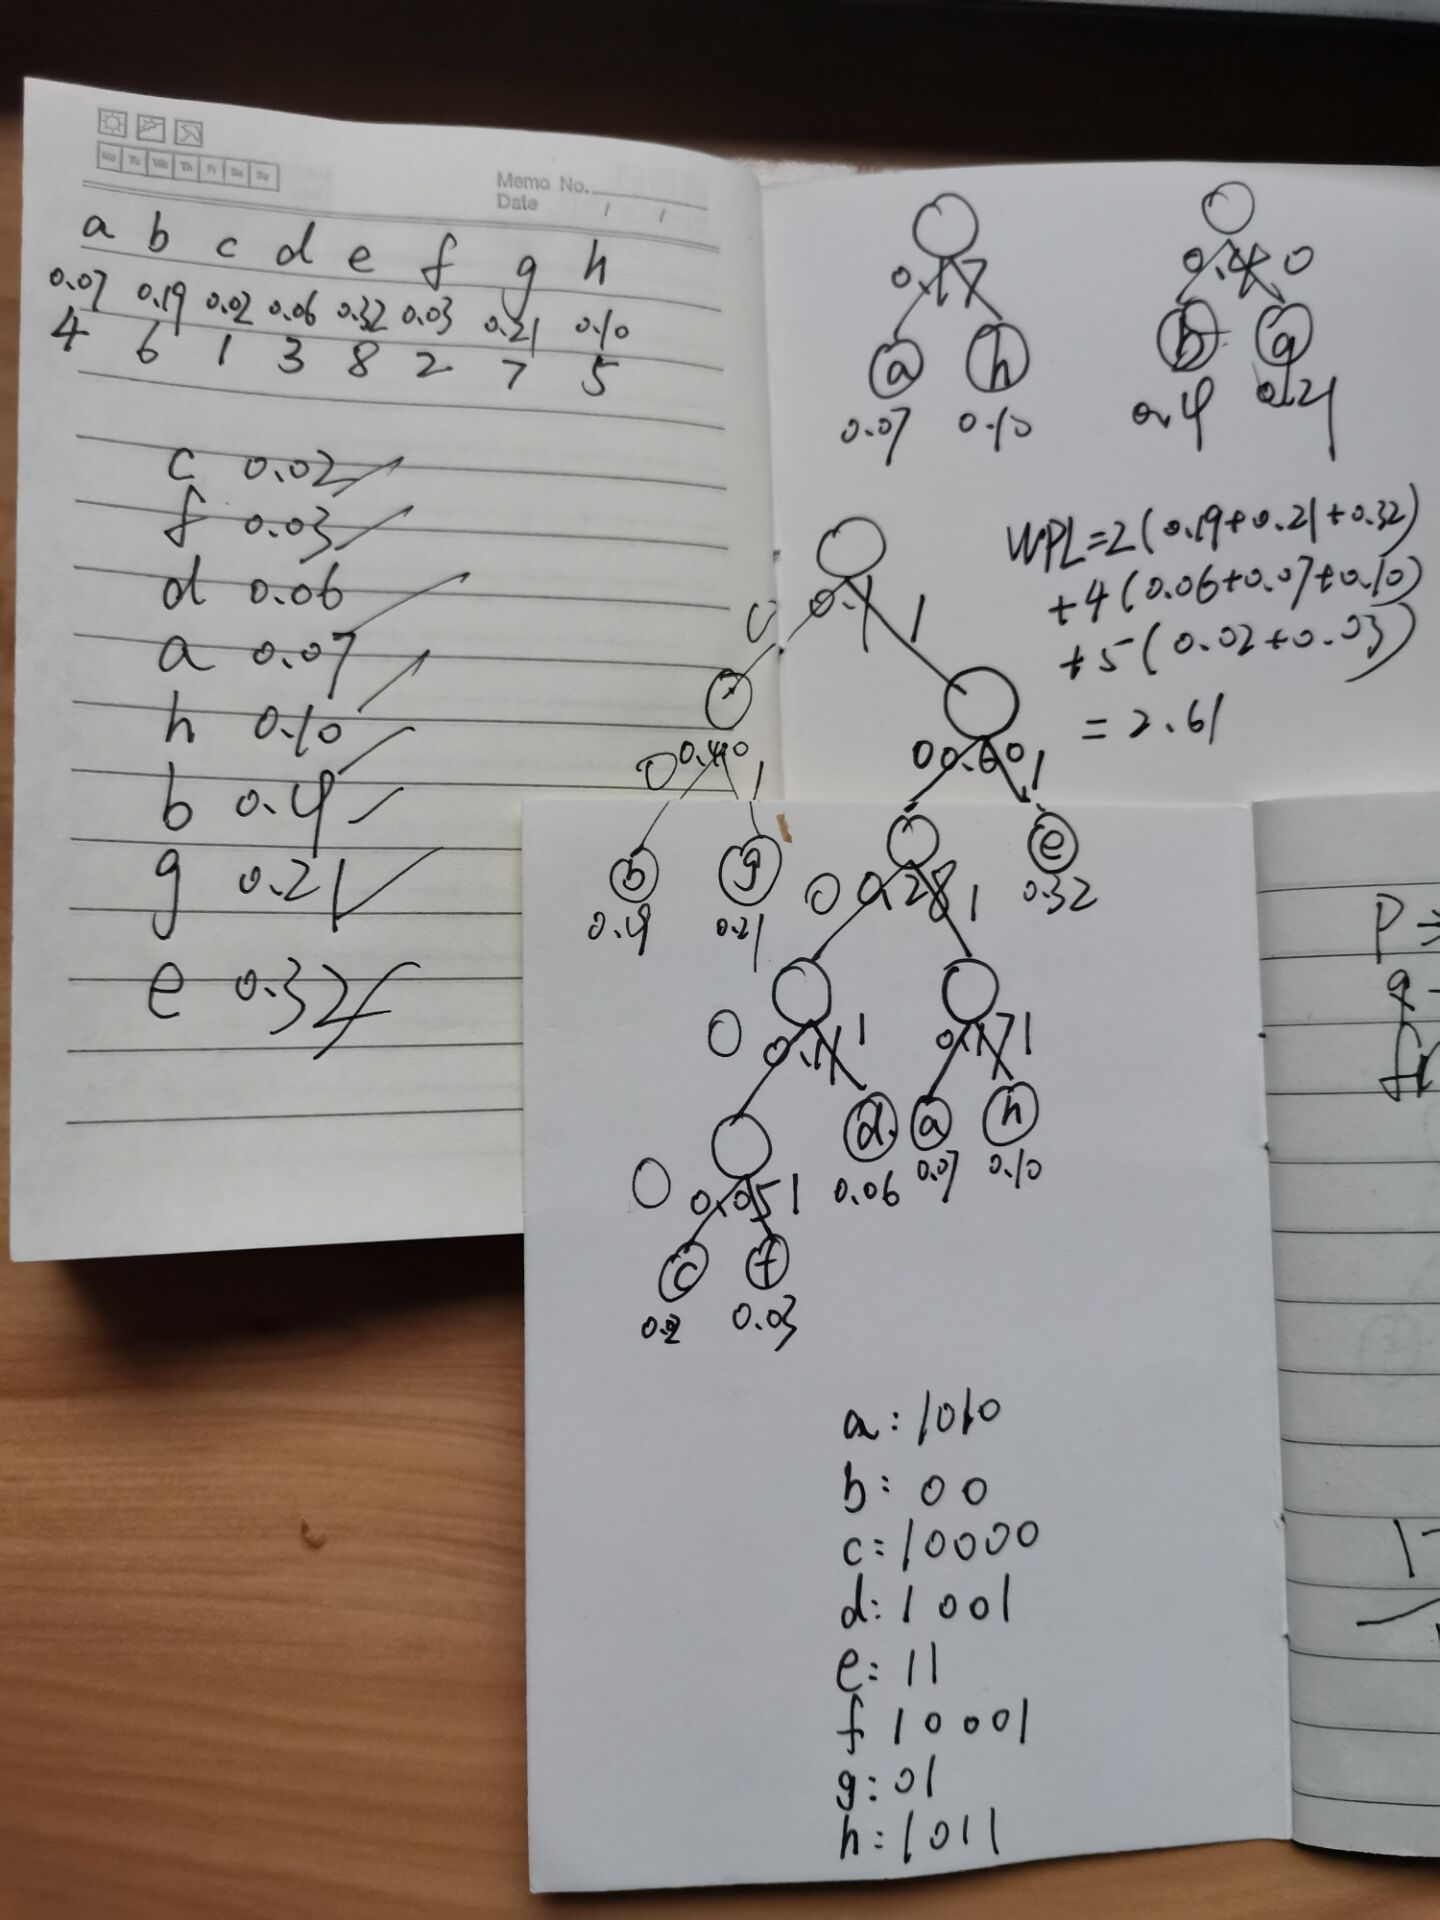 Mo Tu We Th Fr Sa Su
Memo No.
Date / /
a b c d e f g h
0.07 0.19 0.02 0.06 0.32 0.03 0.21 0.10
4 6 1 3 8 2 7 5
c 0.02
f 0.03
d 0.06
a 0.07
h 0.10
b 0.19
g 0.21
e 0.32
0.17
a h
0.07 0.10
0.40
b g
0.19 0.21
WPL=2(0.19+0.21+0.32)
+4(0.06+0.07+0.10)
+5(0.02+0.03)
=2.61
0 1
0.40 0.60
0 1 0 1
b g e
0.19 0.21 0.32
0 0.28 1
0 0.11 1 0.17 1
d a h
0.06 0.07 0.10
0 0.05 1
c f
0.2 0.03
a: 1010
b: 00
c: 10000
d: 1001
e: 11
f 10001
g: 01
h: 1011
P →